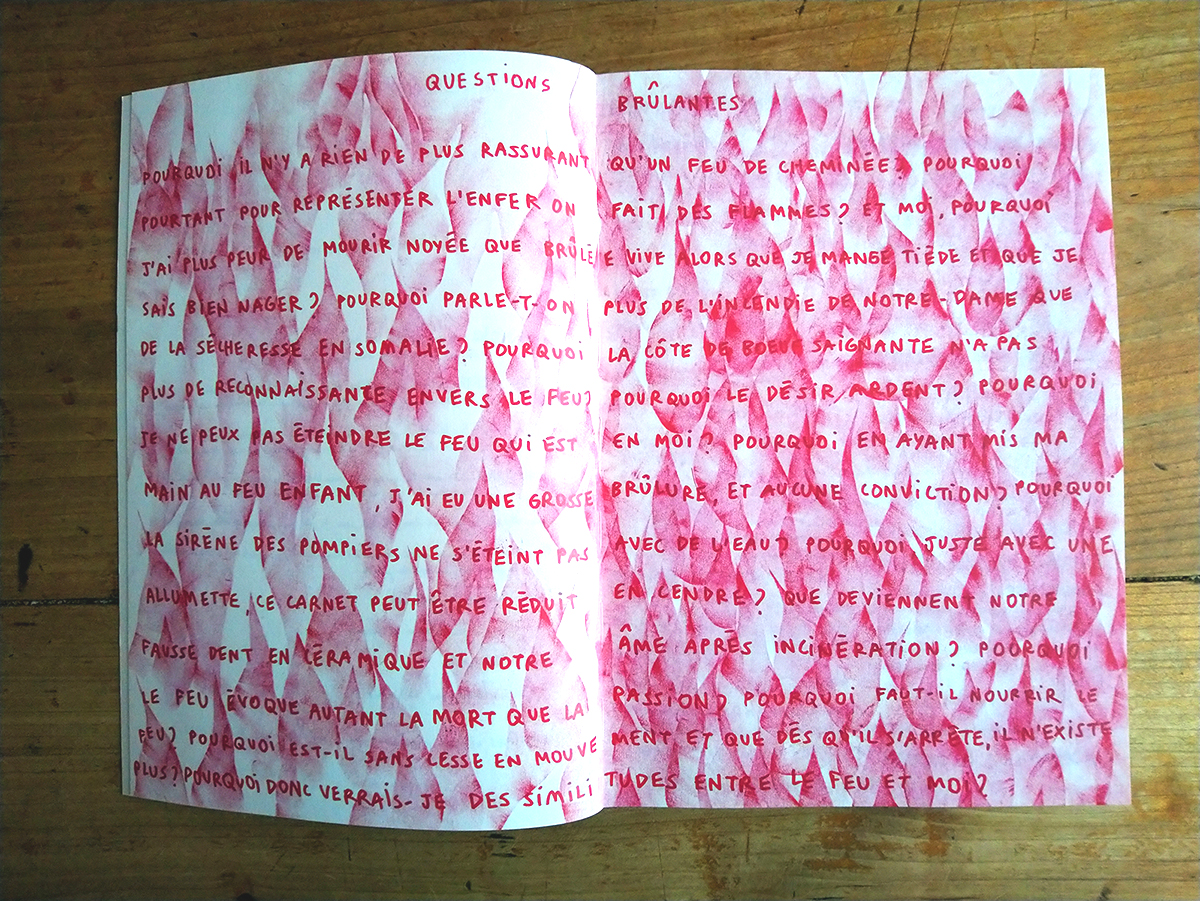 QUESTIONS BRÛLANTES
POURQUOI IL N'Y A RIEN DE PLUS RASSURANT QU'UN FEU DE CHEMINÉE? POURQUOI
POURTANT POUR REPRÉSENTER L'ENFER ON FAIT DES FLAMMES? ET MOI, POURQUOI
J'AI PLUS PEUR DE MOURIR NOYÉE QUE BRÛLÉE VIVE ALORS QUE JE MANGE TIÈDE ET QUE JE
SAIS BIEN NAGER? POURQUOI PARLE-T-ON PLUS DE L'INCENDIE DE NOTRE-DAME QUE
DE LA SÉCHERESSE EN SOMALIE? POURQUOI LA CÔTE DE BOEUF SAIGNANTE N'A PAS
PLUS DE RECONNAISSANCE ENVERS LE FEU? POURQUOI LE DÉSIR ARDENT? POURQUOI
JE NE PEUX PAS ÉTEINDRE LE FEU QUI EST EN MOI? POURQUOI EN AYANT MIS MA
MAIN AU FEU ENFANT, J'AI EU UNE GROSSE BRÛLURE, ET AUCUNE CONVICTION? POURQUOI
LA SIRÈNE DES POMPIERS NE S'ÉTEINT PAS AVEC DE L'EAU? POURQUOI, JUSTE AVEC UNE
ALLUMETTE, CE CARNET PEUT ÊTRE RÉDUIT EN CENDRE? QUE DEVIENNENT NOTRE
FAUSSE DENT EN CÉRAMIQUE ET NOTRE ÂME APRÈS INCINÉRATION? POURQUOI
LE FEU ÉVOQUE AUTANT LA MORT QUE LA PASSION? POURQUOI FAUT-IL NOURRIR LE
FEU? POURQUOI EST-IL SANS CESSE EN MOUVEMENT ET QUE DÈS QU'IL S'ARRÊTE, IL N'EXISTE
PLUS? POURQUOI DONC VERRAIS-JE DES SIMILITUDES ENTRE LE FEU ET MOI?